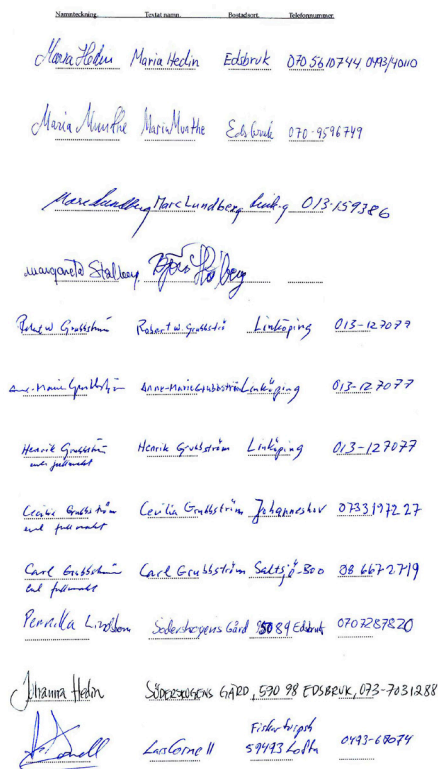 Namnteckning. Textat namn. Bostadsort. Telefonnummer.
Maria Hedin Maria Hedin Edsbruk 070 5610744, 0493/40110
Maria Munthe Maria Munthe Edsbruk 070-9596749
Marc Lundberg Marc Lundberg Link-g 013-159386
Margareta Stålberg,
Robert W Grubbström Robert W. Grubbströ Linköping 013-127077
Ann-Marie Grubbström Anne-Marie Grubbström Linköping 013-127077
Henrik Grubbström Henrik Grubbström Linköping 013-127077
enl fullmakt
Cecilia Grubbström Cecilia Grubbström Johanneshov 0733197227
enl fullmakt
Carl Grubbström Carl Grubbström Saltsjö-Boo 08 6672719
enl fullmakt
Pernilla Lindblom Söderskogens Gård Edsbruk 0707287820
Johanna Hedin SÖDERSKOGENS GÅRD, 590 98 EDSBRUK, 073-7031288
Lars Cornell 59493 Lofta 0493-68074